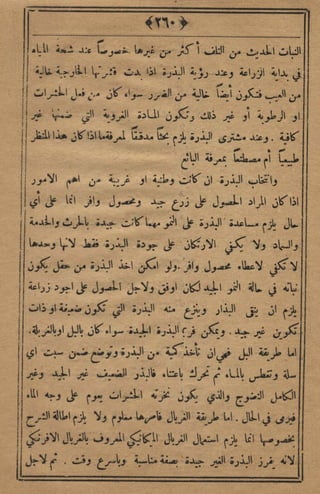 ﴿٢٦٠﴾
النبات الحديث من التلف أكثر من غيرها خصوصاً عند شحة المياه
في بداية الزراعة وعند رؤية البذرة اذا بدت قشرتها الخارجية خالية
من العيب فتكون أيضاً خالية من الضرر سواء كان من فعل الحشرات
او الرطوبة أو غير ذلك وتكون المادة الغروية التي ضمنها غير
كافية . وعند مشترى البذرة يلزم بحثاً مدققاً لمعرفة ما اذا كان هذا المنظر
طبيعياً أم مصطنعاً بمعرفة البائع
وانتخاب البذرة ان كانت وطنية او غريبة من اهم الامور
اذا كان المراد الحصول على زرع جيد ومحصول وافر انما على أي
حال يلزم مساعدة البذرة على النمو مهما كانت جيدة بالحرث والخدمة
والسماد ولا يكفي الارتكان على جودة البذرة فقط لانها وحدها
لا تكفي لاعطاء محصول وافر . ولو امكن اخذ البذرة من حقل يكون
نباته في حالة النمو الجيد لكان اوفق ولاجل الحصول على اجود زراعة
يلزم ان ينقى البذار وينزع منه البذرة التي تكون ضعيفة او ذات
تكوين غير جيد . ويمكن فرز البذرة الجيدة سواء كان بالبل او بالغربلة .
اما طريقة البل فهي ان تأخذ كمية من البذرة وتوضع ضمن سبت اي
سلة وتغطس بالماء ثم تحرك باعتناء فالبذر الضعيف غير الجيد وغير
الكامل النضوج والذي يكون نخرته الحشرات يعوم على وجه الماء
فيرمى في الحال . اما طريقة الغربال فامرها معلوم ولا يلزم اطالة الشرح
بخصوصها انما يلزم استعمال الغربال الميكانيكي المعروف بالغربال الافرنكي
لانه يفرز البذرة الغير جيدة بصفة مناسبة وباسرع وقت . ثم لاجل